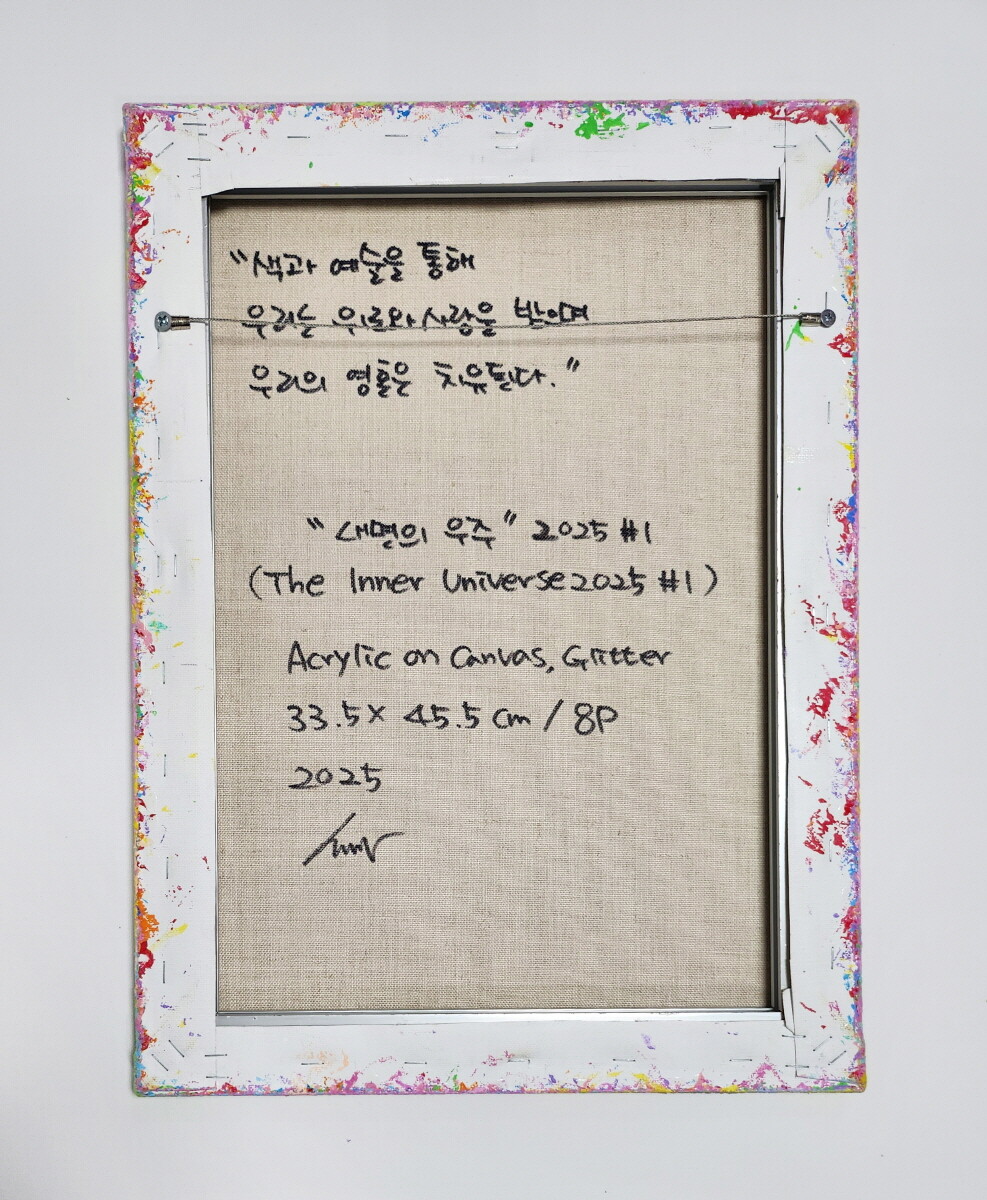 "색과 예술을 통해
우리는 위로와 사랑을 받으며
우리의 영혼은 치유된다."
"내면의 우주" 2025 #1
(The Inner Universe 2025 #1)
Acrylic on Canvas, Glitter
33.5 x 45.5 cm / 8P
2025